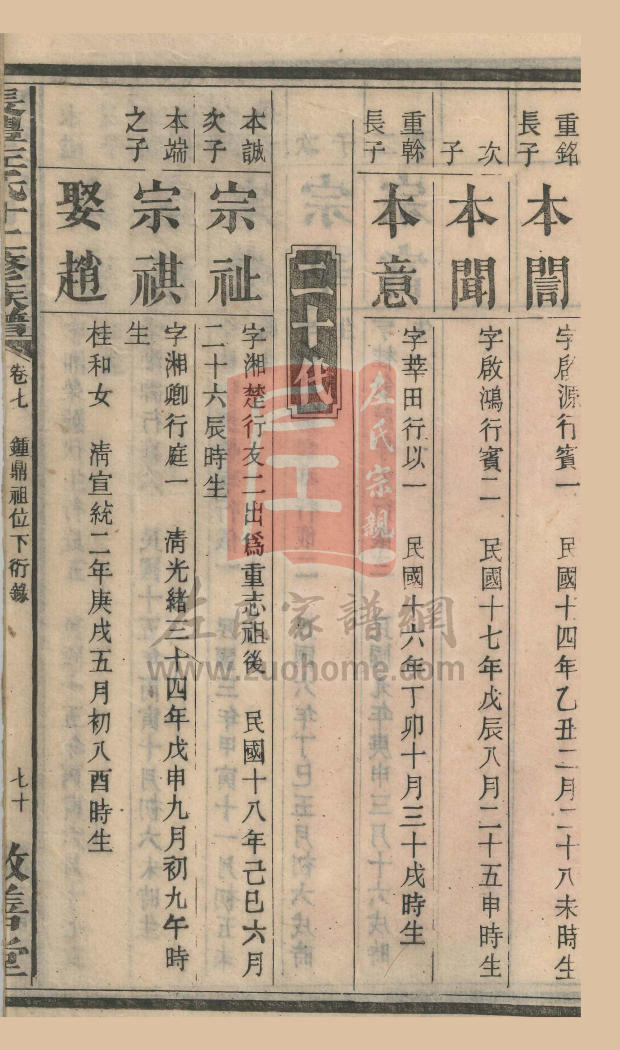 重銘
長子
本誾
字啟源行賓一 民國十四年乙丑二月二十八未時生
次
子
本聞
字啟鴻行賓二 民國十七年戊辰八月二十五申時生
重幹
長子
本意
字莘田行以一 民國十六年丁卯十月三十戌時生
二十代
本誠
次子
宗祉
字湘楚行友二出爲重志祖後 民國十八年己巳六月
二十六辰時生
本端
之子
宗祺
字湘卿行庭一 清光緒三十四年戊申九月初九午時
生
娶趙
桂和女 清宣統二年庚戌五月初八酉時生
氏十二修族譜
卷七 鍾鼎祖位下衍錄
七十
敦善堂
左氏宗親
左氏家譜網
www.zuohome.com